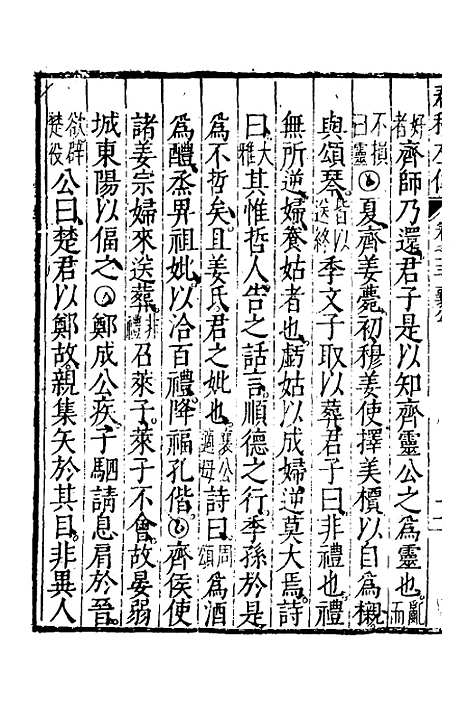 好者齊師乃還。君子是以知齊靈公之爲靈也。亂而
不損曰靈○夏齊姜薨。初穆姜使擇美檟以自爲櫬
與頌琴。皆以送終季文子取以葬。君子曰。非禮也。禮
無所逆。婦養姑者也。虧姑以成婦。逆莫大焉。詩
曰。大雅其惟哲人。告之話言。順德之行。季孫於是
爲不哲矣。且姜氏君之妣也。襄公適母詩曰。周頌爲酒
爲醴。烝畀祖妣。以洽百禮。降福孔偕。○齊侯使
諸姜宗婦來送葬。非禮召萊子。萊子不會。故晏弱
城東陽以偪之。○鄭成公疾。子駟請息肩於晉。
欲辟楚役公曰。楚君以鄭故。親集矢於其目。非異人